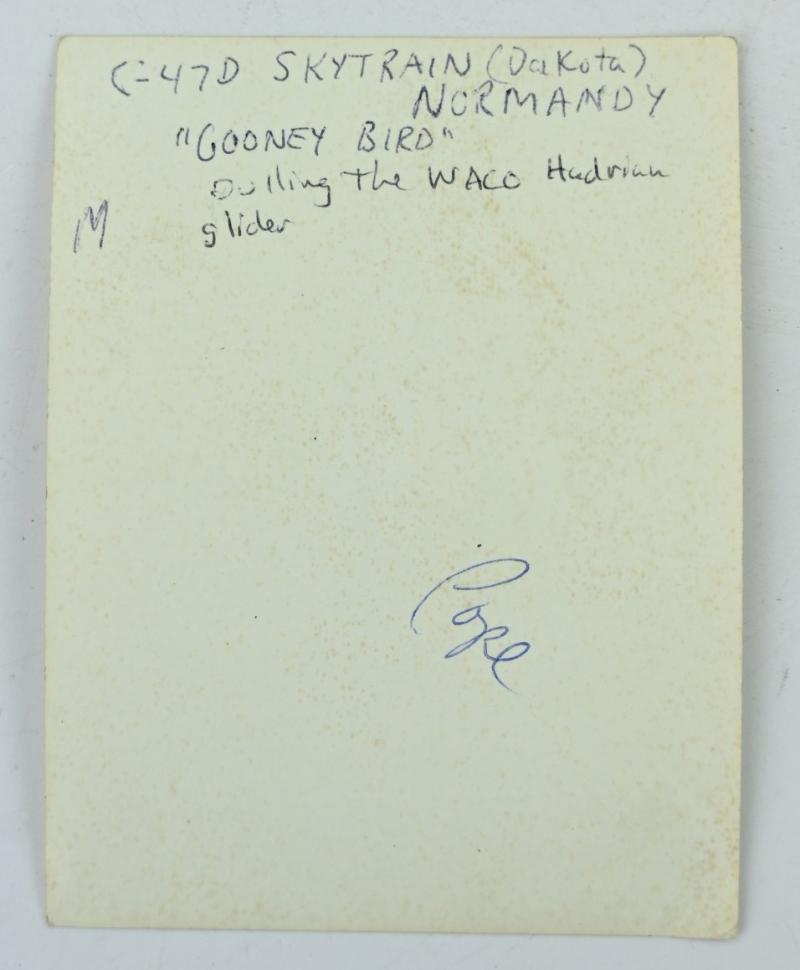 C-47D SKYTRAIN (Dakota)
NORMANDY
"GOONEY BIRD"
Pulling the WACO Hadrian
M glider
Cope